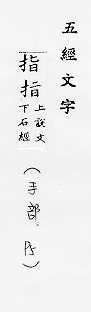 五經文字
指指上說文下石經
（手部．P5）